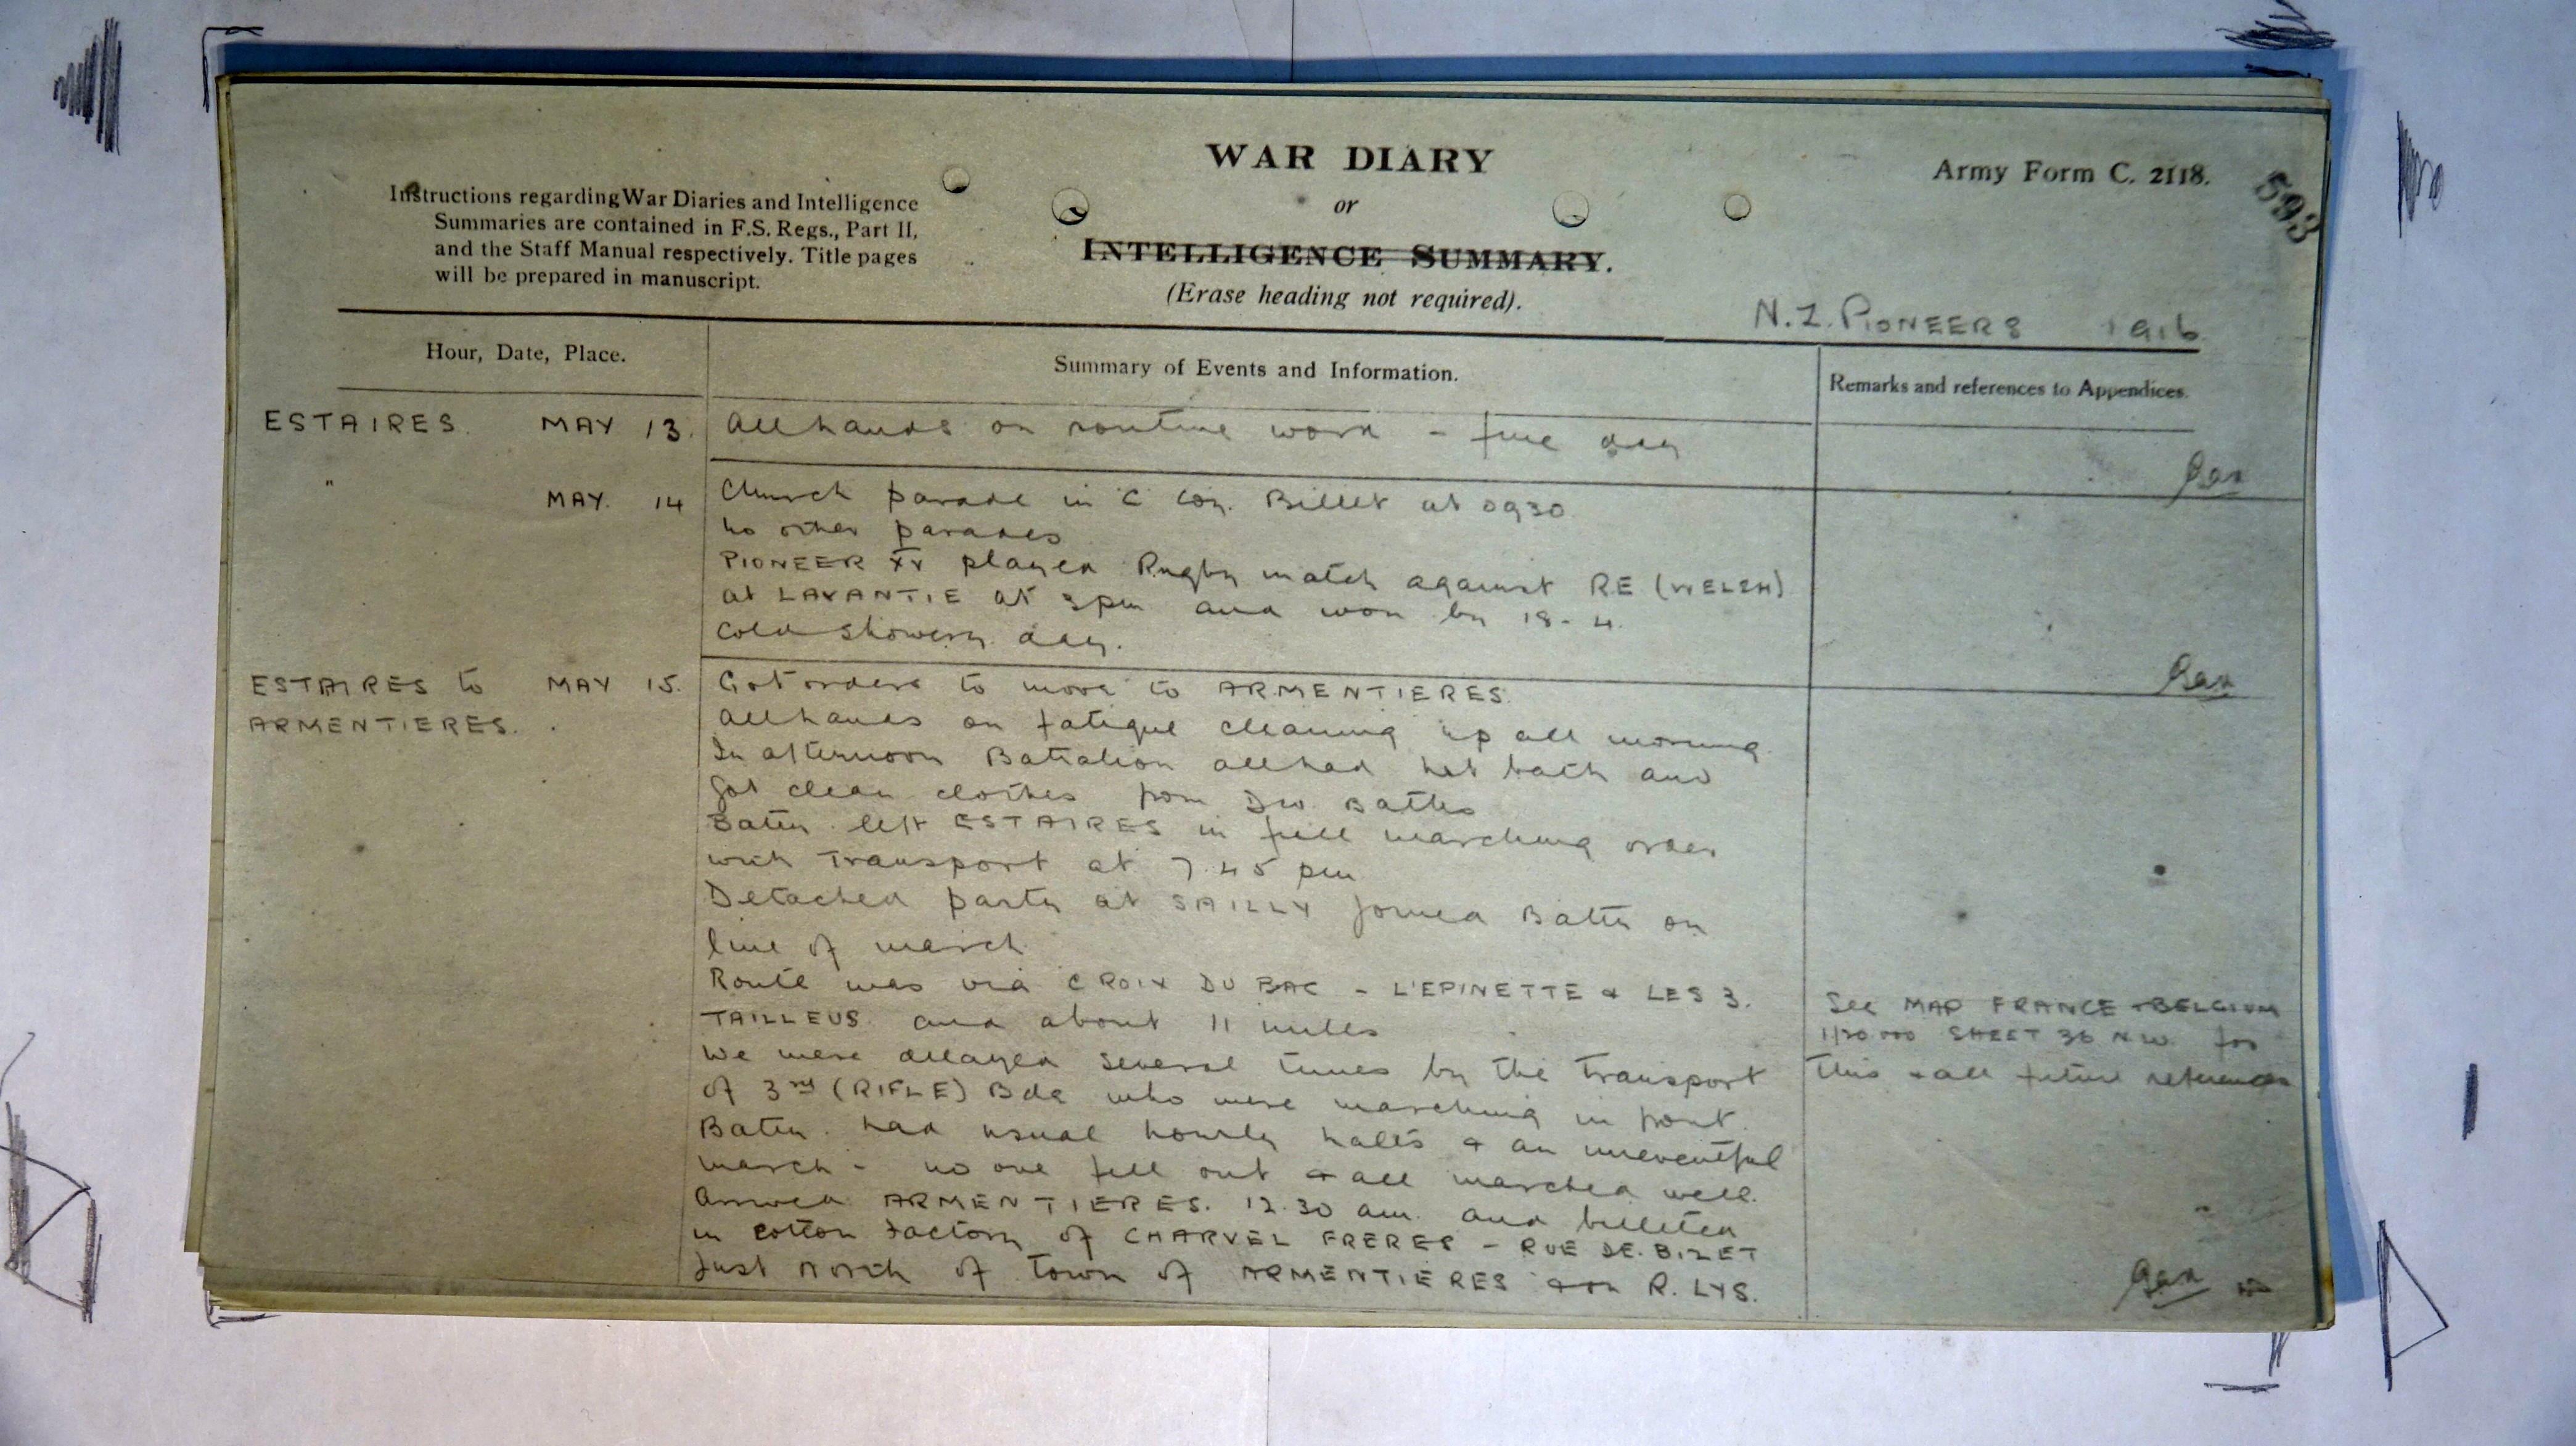 WAR DIARY
or
INTELLIGENCE SUMMARY.
(Erase heading not required).
Army Form C. 2118.
593
Instructions regarding War Diaries and Intelligence
Summaries are contained in F.S. Regs., Part II,
and the Staff Manual respectively. Title pages
will be prepared in manuscript.
N.Z. PIONEERS 1916
Hour, Date, Place.
Summary of Events and Information.
Remarks and references to Appendices.
ESTAIRES. MAY 13. All hands on routine work - fine day
" MAY. 14 Church parade in C Coy. Billet at 0930
no other parades
PIONEER XV played Rugby match against RE (WELSH)
at LAVANTIE at 3pm and won by 18-4.
Cold showery day.
ESTAIRES to MAY 15. Got orders to move to ARMENTIERES.
ARMENTIERES.
All hands on fatigue cleaning up all morning.
In afternoon Battalion all had hot bath and
got clean clothes from Div. Baths
Battn. left ESTAIRES in full marching order
with Transport at 7.45 pm
Detached party at SAILLY joined Battn on
line of march
Route was via CROIX DU BAC - L'EPINETTE & LES 3.
TAILLEUS and about 11 miles
We were delayed several times by the Transport
of 3rd (RIFLE) Bde who were marching in front.
Battn. had usual hourly halts & an uneventful
march - no one fell out & all marched well.
Arrived ARMENTIERES. 12.30 am. and billeted
in cotton factory of CHARVEL FRERES - RUE DE. BIZET
Just north of town of ARMENTIERES & on R. LYS.
See MAP FRANCE & BELGIUM
1/20.000 SHEET 36 N.W. for
this & all future references